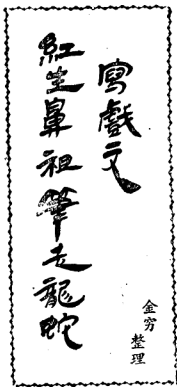 寫戲文
紅生鼻祖筆走龍蛇
金穷
整理